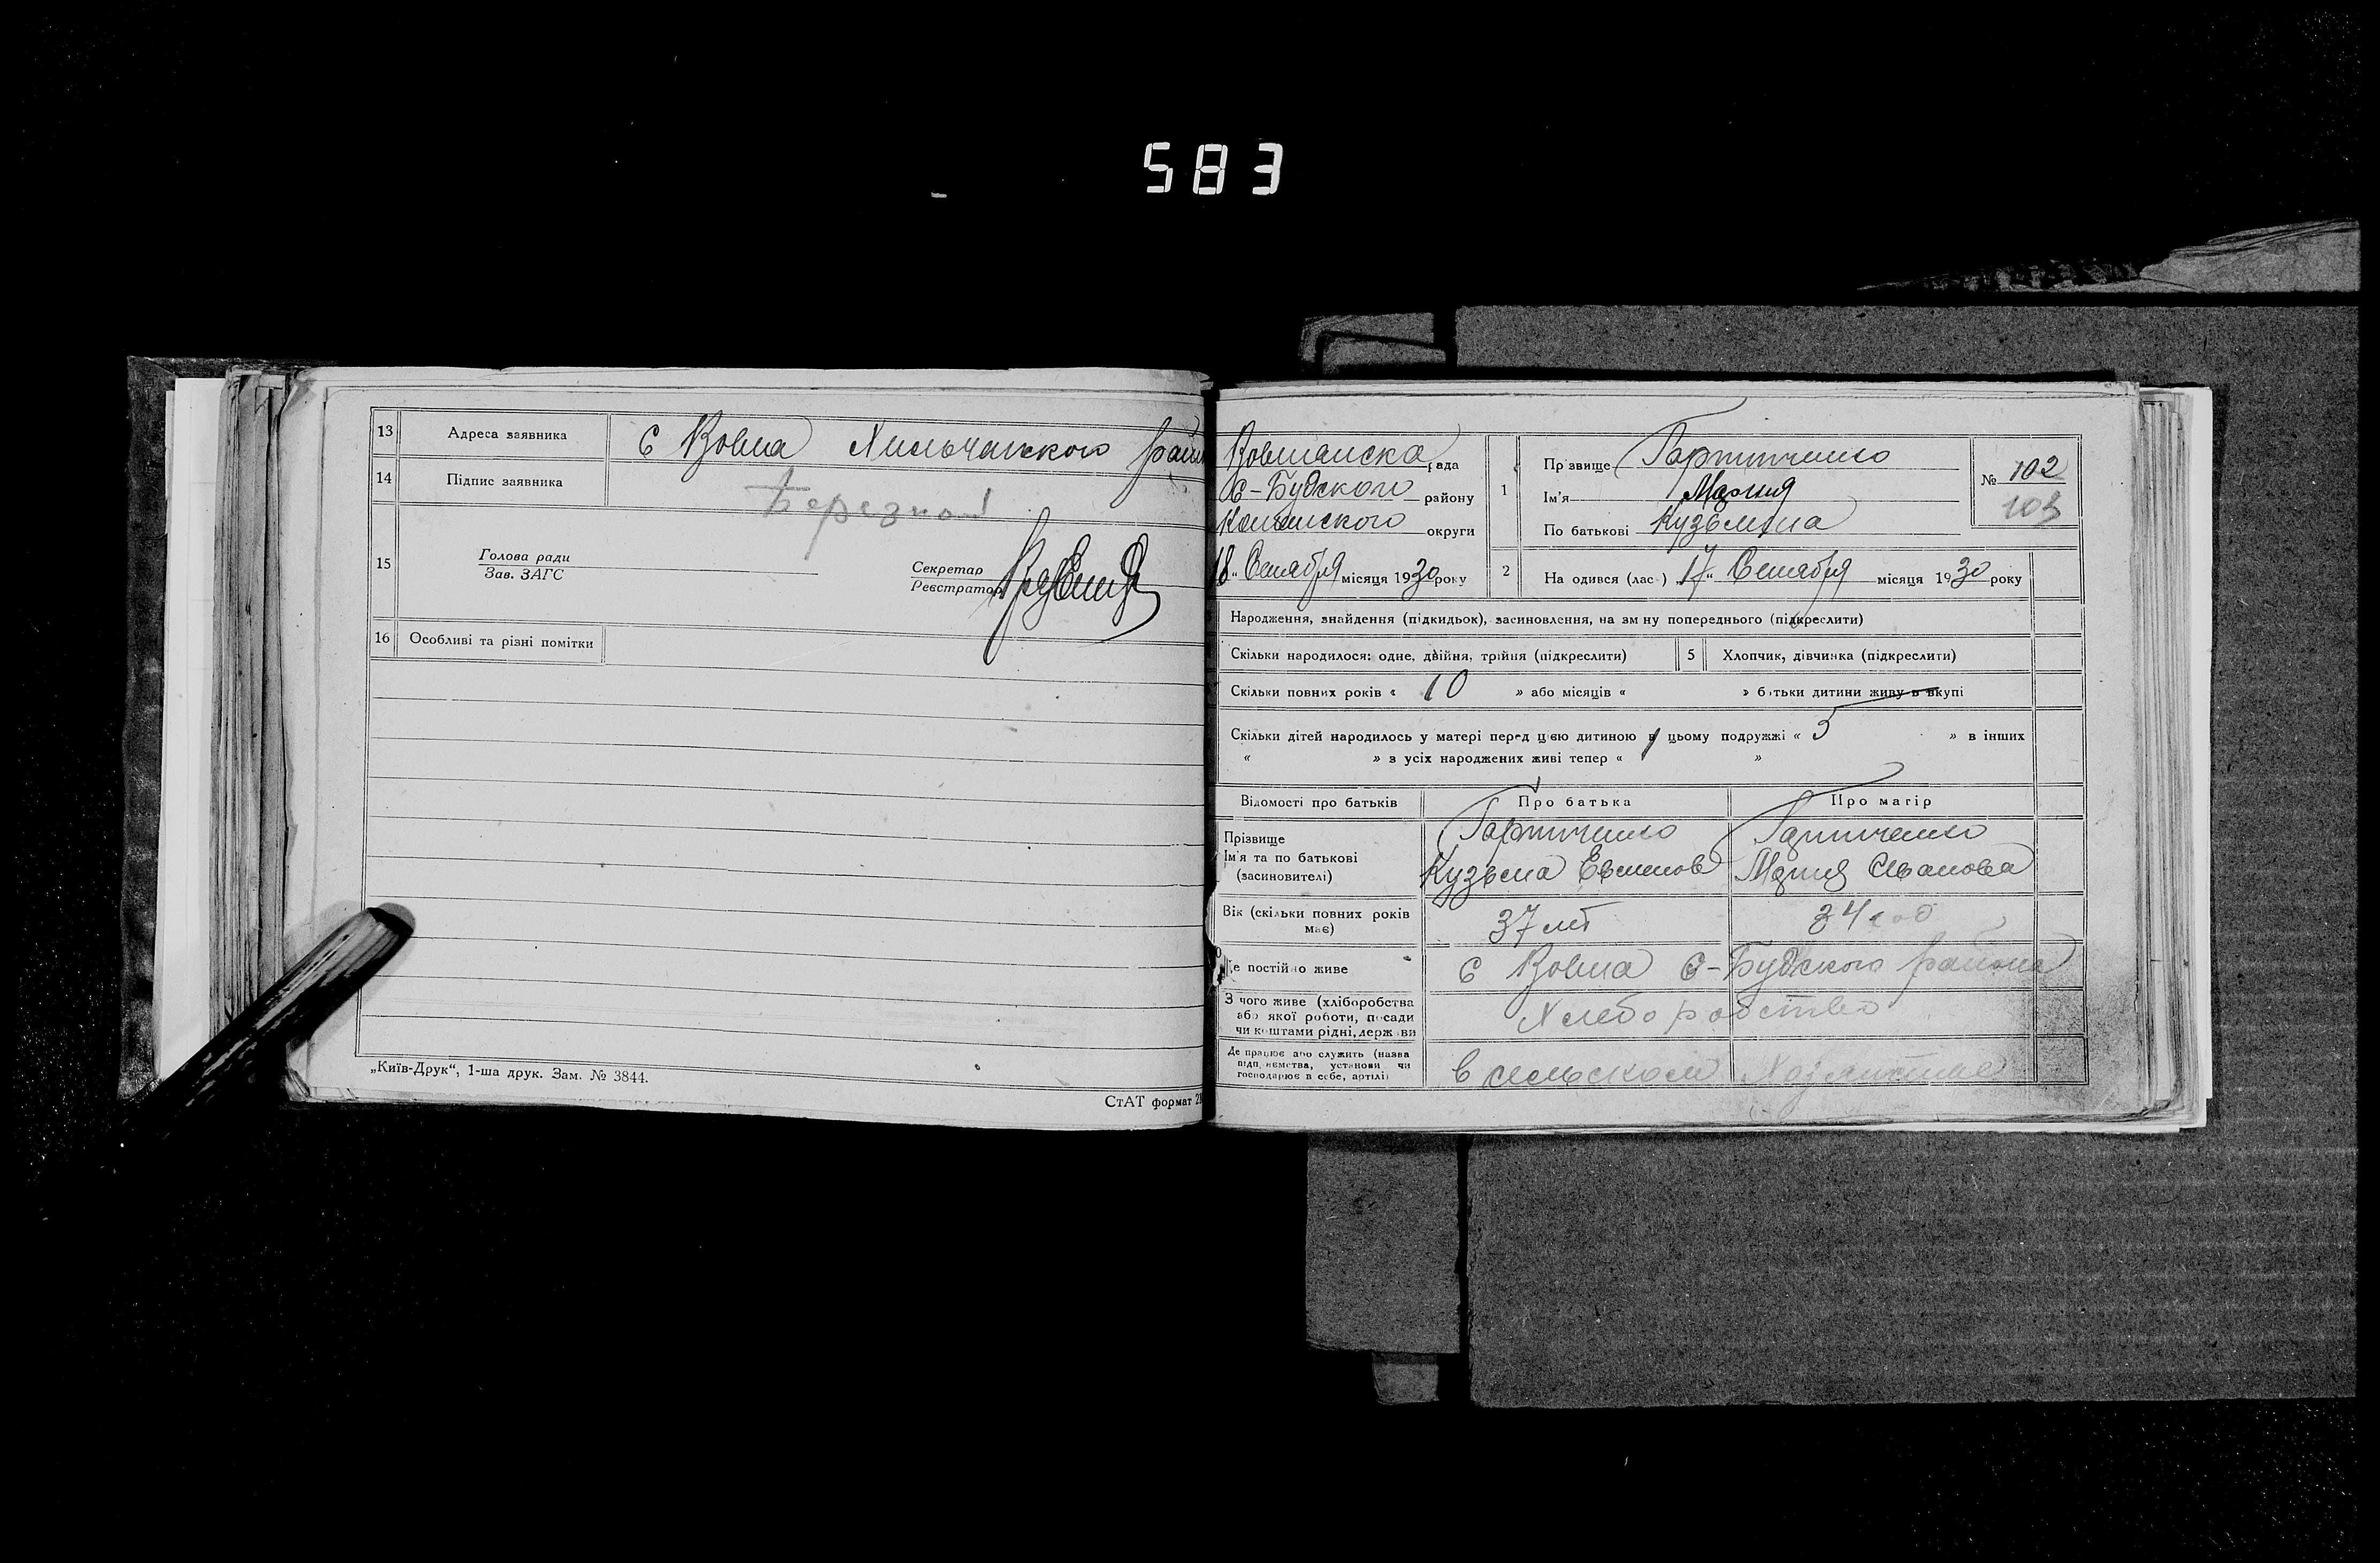 583
13 Адреса заявника с Вовна Хильчанского
14 Підпис заявника
15 Голова ради
Зав. ЗАГС
Секретар
Реєстратор
16 Особливі та різні помітки
„Київ-Друк“, 1-ша друк. Зам. № 3844.
СтАТ формат
рада
С-Будского району
округи
18 " Сентября місяця 1930 року
1 Прізвище
Ім'я Мария
По батькові Кузьмина
№ 102
103
2 На одився (лась) „17“ Сентября місяця 1930 року
Народження, знайдення (підкидьок), засиновлення, на зміну попереднього (підкреслити)
Скільки народилося: одне, двійня, трійня (підкреслити) 5 Хлопчик, дівчинка (підкреслити)
Скільки повних років « 10 » або місяців « » батьки дитини живуть вкупі
Скільки дітей народилось у матері перед цією дитиною в цьому подружжі « 5 » в інших
« » з усіх народжених живі тепер « »
Відомості про батьків Про батька Про матір
Прізвище
Ім'я та по батькові Кузьма Мария Иванова
(засиновителі)
Вік (скільки повних років 37 лет 34
має)
Де постійно живе с Вовна С-Будского района
З чого живе (хліборобства Хлеборобство
або якої роботи, посади
чи коштами рідні, держави
Де працює або служить (назва
підприємства, установи чи в сельском Хозяистве
господарює в себе, артілі)